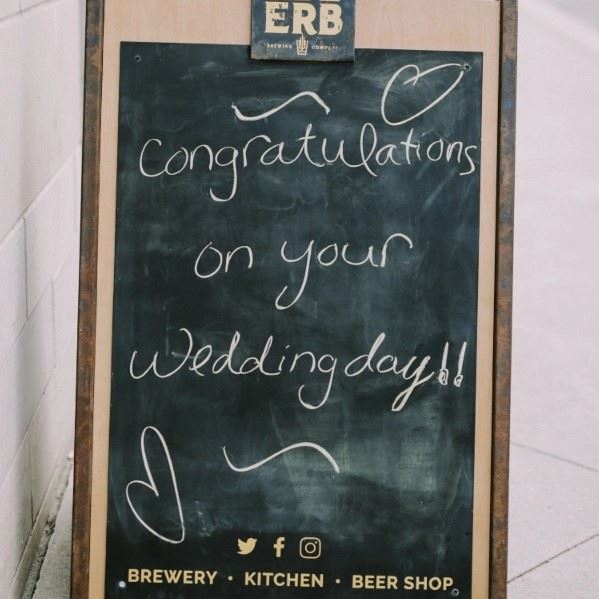 ERB
BREWING COMPANY
Congratulations
on your
Wedding day!!
BREWERY · KITCHEN · BEER SHOP